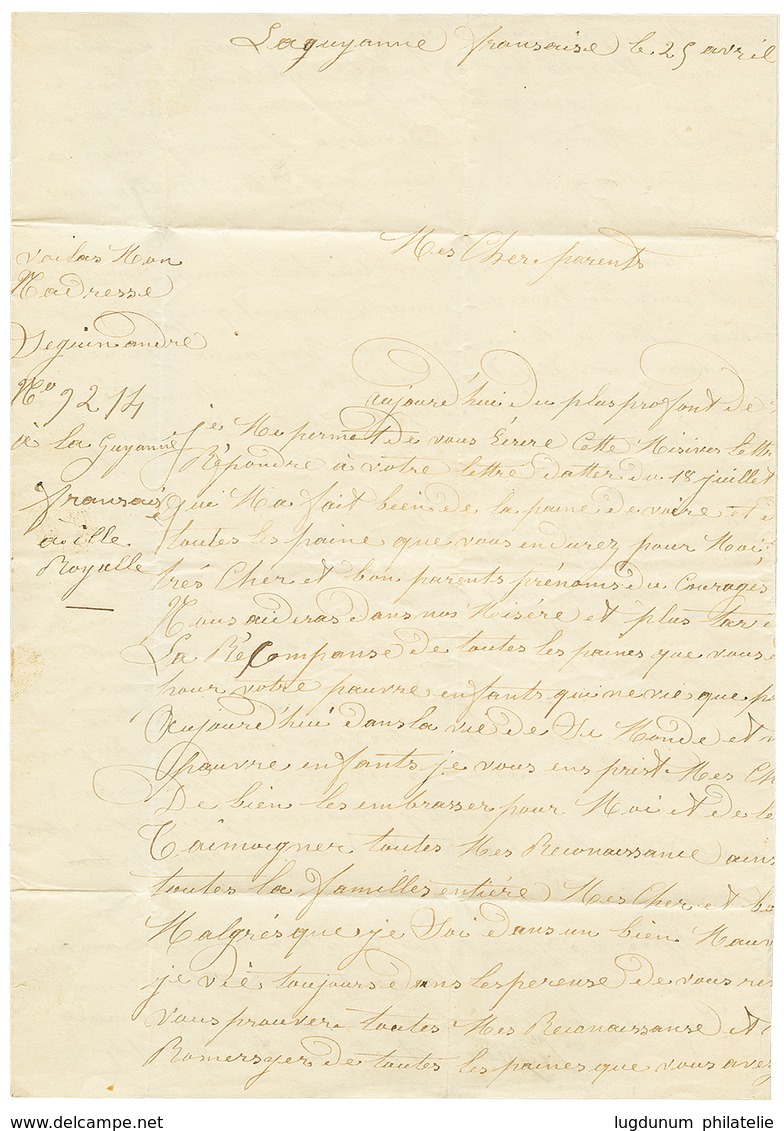 Laguyanne fransaise le 25 avril
Mes Cher parents
voilas Mon
Nadresse
Seguin andre
No 9214
à la Guyanne
fransaise
a ille
Royalle
aujourd'hui du plus profont de
je Me permet de vous Ecrire Cette Misives lettr
Répondre à votre lettre datter du 18 juillet
qui Ma fait bien de la paine de voire et
toutes les paine que vous endurez pour Moi
trés Cher et bon parents prénoms du Courages
Nous aideras dans nos Misére et plus tar
La Récompanse de toutes les paines que vous
pour votre pauvre enfants qui ne vie que
Aujourd'hui dans la vie de Se Monde et
pauvre enfants je vous ens prist Mes Ch
De bien les embrasser pour Moi et de le
Taimoigner toutes Mes Reconaissance ains
toutes la familles entiére Mes Cher et bo
Malgrés que je Soi dans un bien Mauv
je vie toujours dans lesperense de vous re
vous prouver toutes Mes Reconaissanse et
Romersyer de toutes les paines que vous avez
www.delcampe.net
lugdunum philatelie